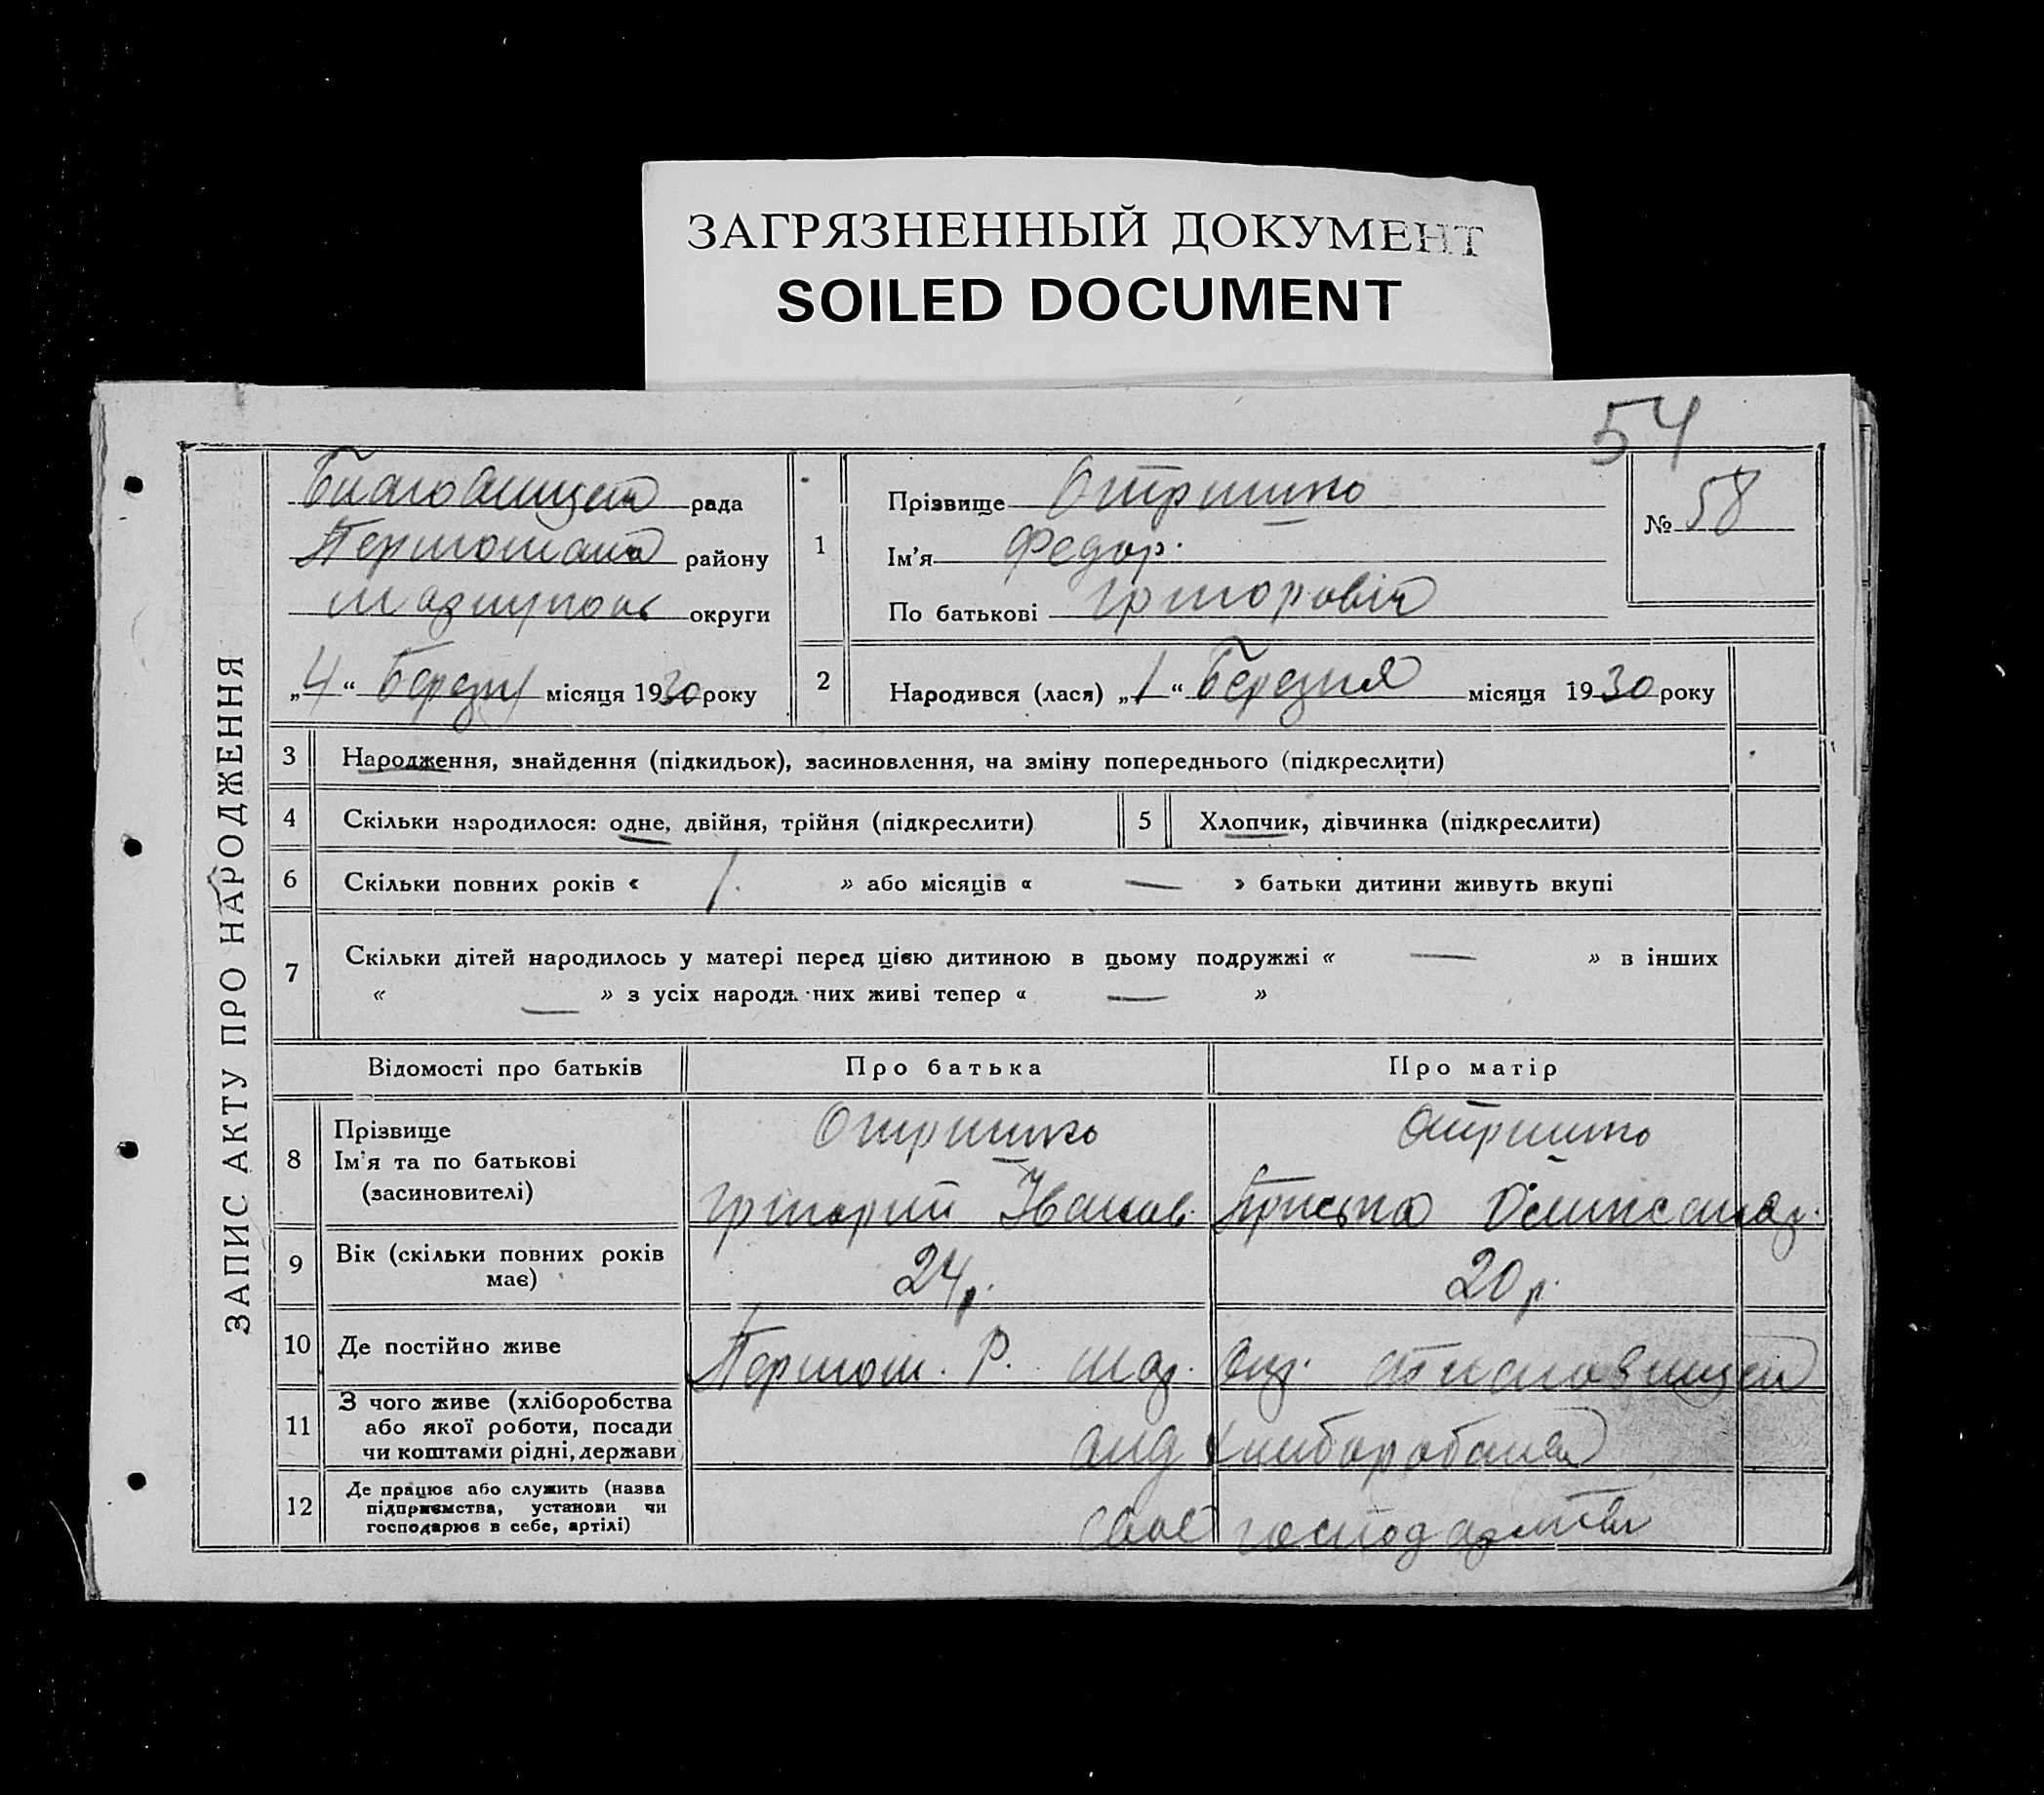 ЗАГРЯЗНЕННЫЙ ДОКУМЕНТ
SOILED DOCUMENT
54
ЗАПИС АКТУ ПРО НАРОДЖЕННЯ
рада
району
округи
„4“ місяця 1930 року
1
Прізвище Отришко
Ім’я Федор.
По батькові Григоровіч
№ 58
2
Народився (лася) „1“ Березня місяця 1930 року
3 Народження, знайдення (підкидьок), засиновлення, на зміну попереднього (підкреслити)
4 Скільки народилося: одне, двійня, трійня (підкреслити)
5 Хлопчик, дівчинка (підкреслити)
6 Скільки повних років « 1. » або місяців « — » батьки дитини живуть вкупі
7 Скільки дітей народилось у матері перед цією дитиною в цьому подружжі « — » в інших
« — » з усіх народж них живі тепер « — »
Відомості про батьків Про батька Про матір
8 Прізвище
Ім’я та по батькові
(засиновителі)
Отришко Отришко
Григорий Іванов.
9 Вік (скільки повних років
має)
24 р. 20 р.
10 Де постійно живе
Р.
11 З чого живе (хліборобства
або якої роботи, посади
чи коштами рідні, держави
12 Де працює або служить (назва
підприємства, установи чи
господарює в себе, артілі)